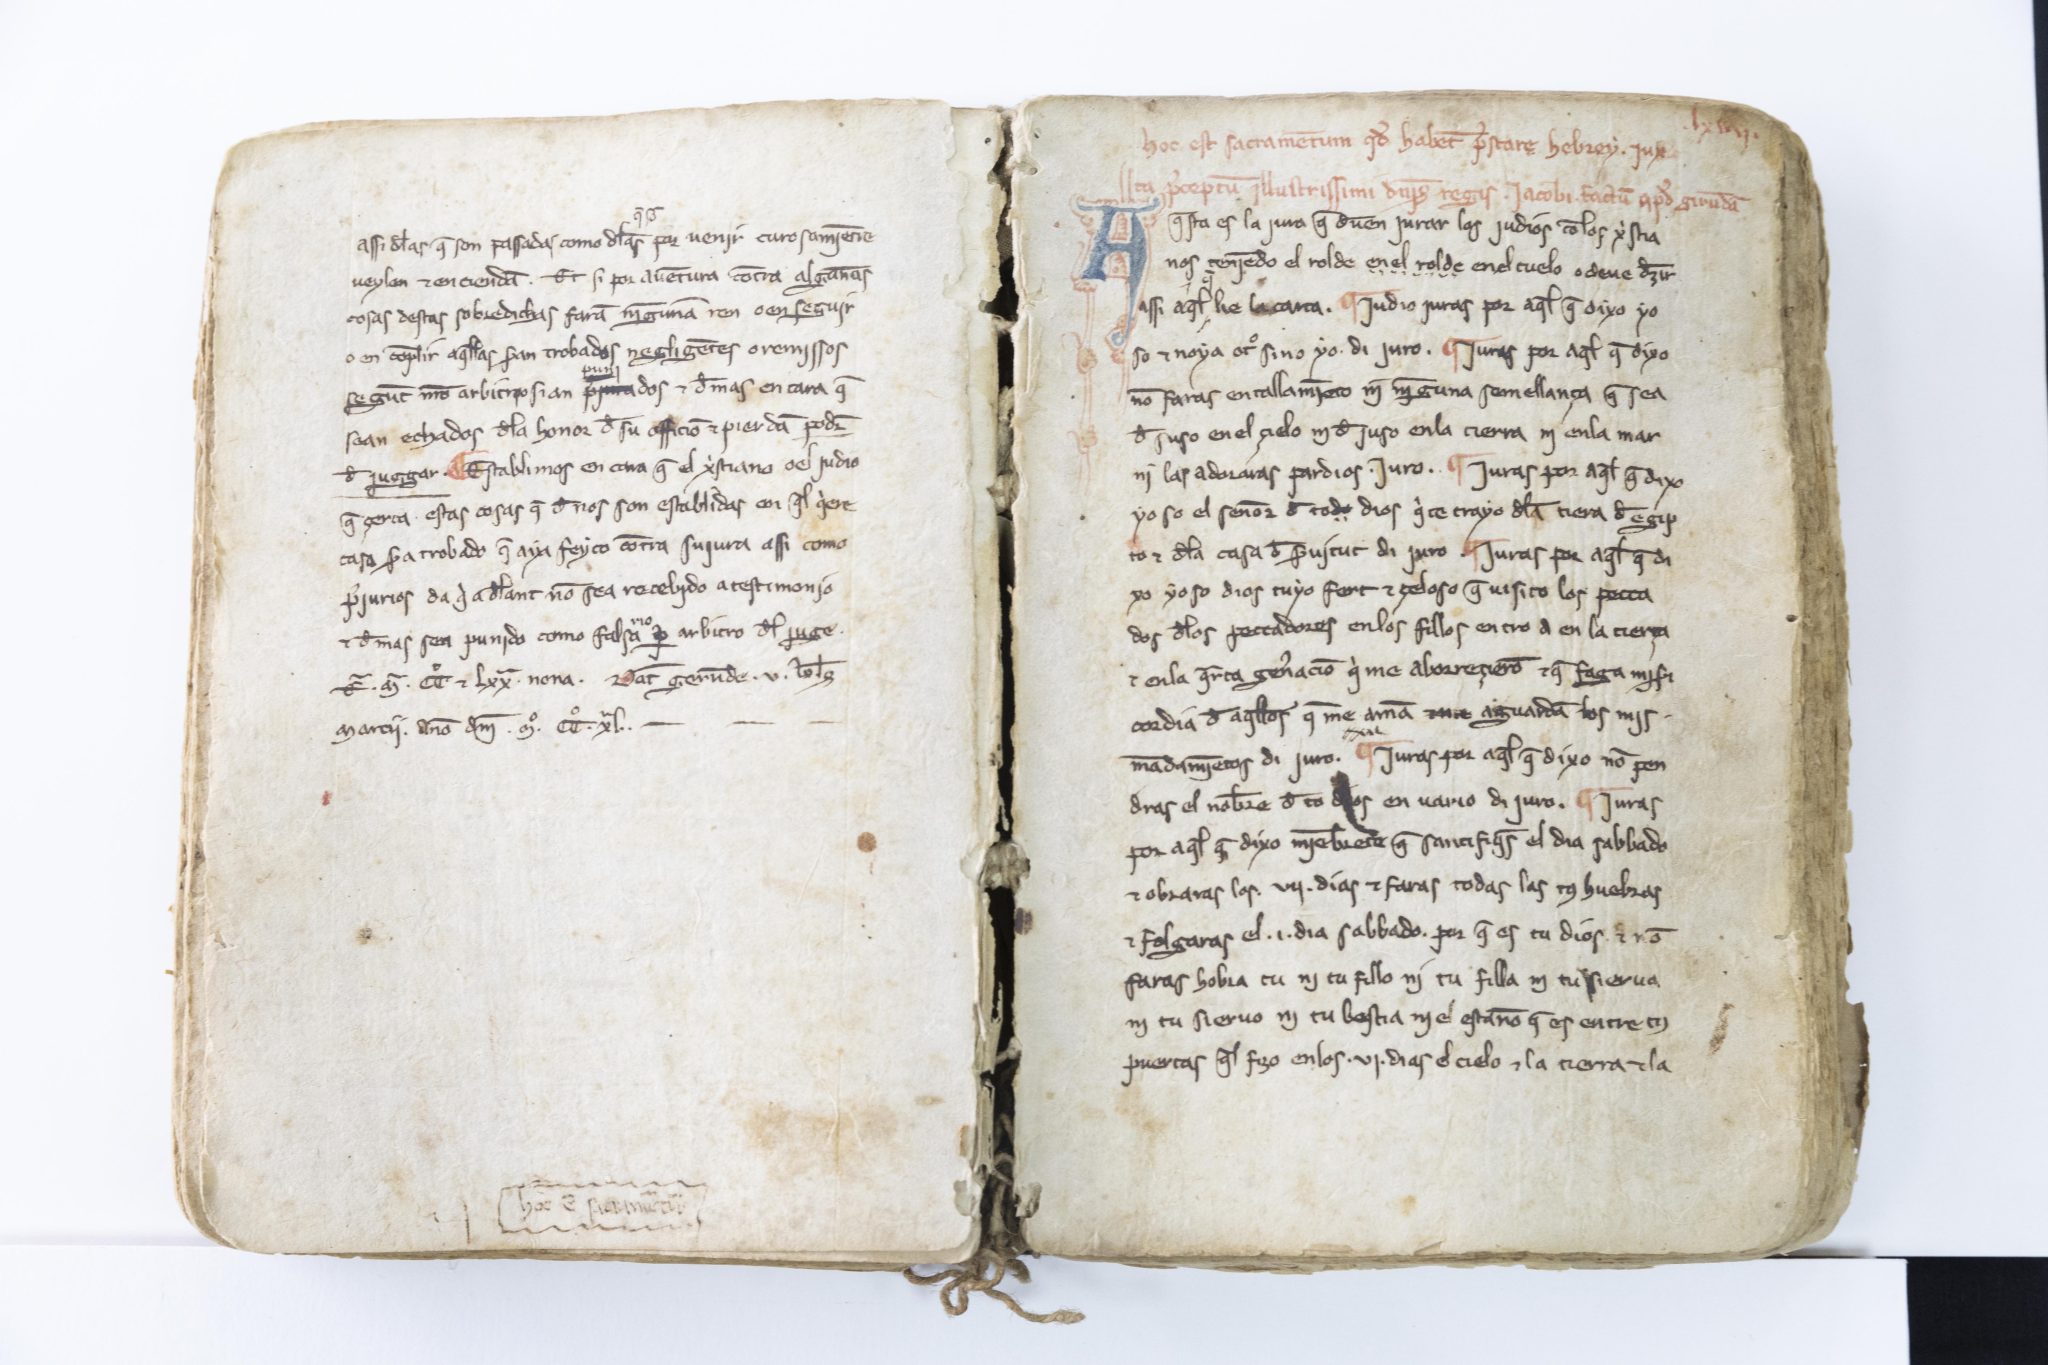 q̄ s̄
assi dl̄as q̄ son passadas como dl̄as por venir curosamīētre
veylen ⁊ enciendā. Et si por auētura cōtra algunas
cosas destas sobredichas farā nīgunā ren o en seguir
o en cōplir aq̄llas s̄an trobados negligētes o remissos
punj
segūt nr̄o arbitrio sian dos ⁊ d̄mas encara q̄
sean echados dl̄a honor d̄ su officio ⁊ pierdā podr̄
d̄ jutgar. ¶ Establimos encara q̄ el xp̄stiano o el judio
q̄ çerca estas cosas q̄ d̄ nos son establidas en q̄l q̇ere
casa s̄a trobado q̄ aya feyto cōtra su jura assi como
p̄jurios da q̇ adl̄ant nō sea recebido a testimonjo
rio
⁊ d̄mas sea punido como falsa ꝑ arbitro dl̄ juge.
E. M. CC ⁊ Lxx nona. Dat̄ gerunde. v. kl̄s
marcij. año dm̄. mº. CCº. xl.
hoc ē sacramētū
.lxvij.
hoc est sacramētum qd̄ habēt p̄stare hebrey. jux
ta p̄ceptū illustrissimi dn̄j regis. Jacobi. factū apd̄ girundā
Aq̄sta es la jura q̄ deuen jurar los judios cō los xp̄stia
nos tenjēdo el rolde en el rolde en el cuello o deue dzir
q̄
assi aq̄l lie la carta. ¶ Judio juras por aq̄l q̄ dixo yo
so ⁊ no ya otº sino yo. di juro. ¶ Juras por aq̄l q̄ dixo
nō faras entallamiēto nj nīguna semellança q̄ sea
d̄ suso en el çielo nj d̄ juso en la tierra nj en la mar
nj las adoraras par dios. Juro. ¶ Juras por aq̄l q̄ dixo
yo so el señor d̄ todo dios q̇ te trayo dl̄a tiera d̄ egip
to ⁊ dl̄a casa d̄ s̄uitut di juro. ¶ Juras por aq̄l q̄ di
xo yo so dios tuyo fort ⁊ çeloso q̄ visito los pecca
dos dl̄os peccadores en los fillos entro a en la tierça
⁊ en la q̄rta gen̄acio q̇ me aborreçierō ⁊ q̄ faga misi
cordia d̄ aq̄llos q̄ me amā aguardā los mjs
mādamiētos di juro. ¶ Juras por aq̄l q̄ dixo nō pen
dras el nōbre d̄ to dios en vario di juro. ¶ Juras
por aq̄l q̄ dixo miēbrete q̄ sanctifiq̄s el dia sabbado
⁊ obraras los. vij. dias ⁊ faras todas las tȝ huebras
⁊ folgaras el. i. dia sabbado. por q̄ es tu dios ⁊ nō
faras hobra tu nj tu fillo nj tu filla nj tu sierua
nj tu sieruo nj tu bestia nj el estraño q̄ es entre tȝ
puertas q̄l fizo en los. vj. dias el cielo ⁊ la tierra ⁊ la